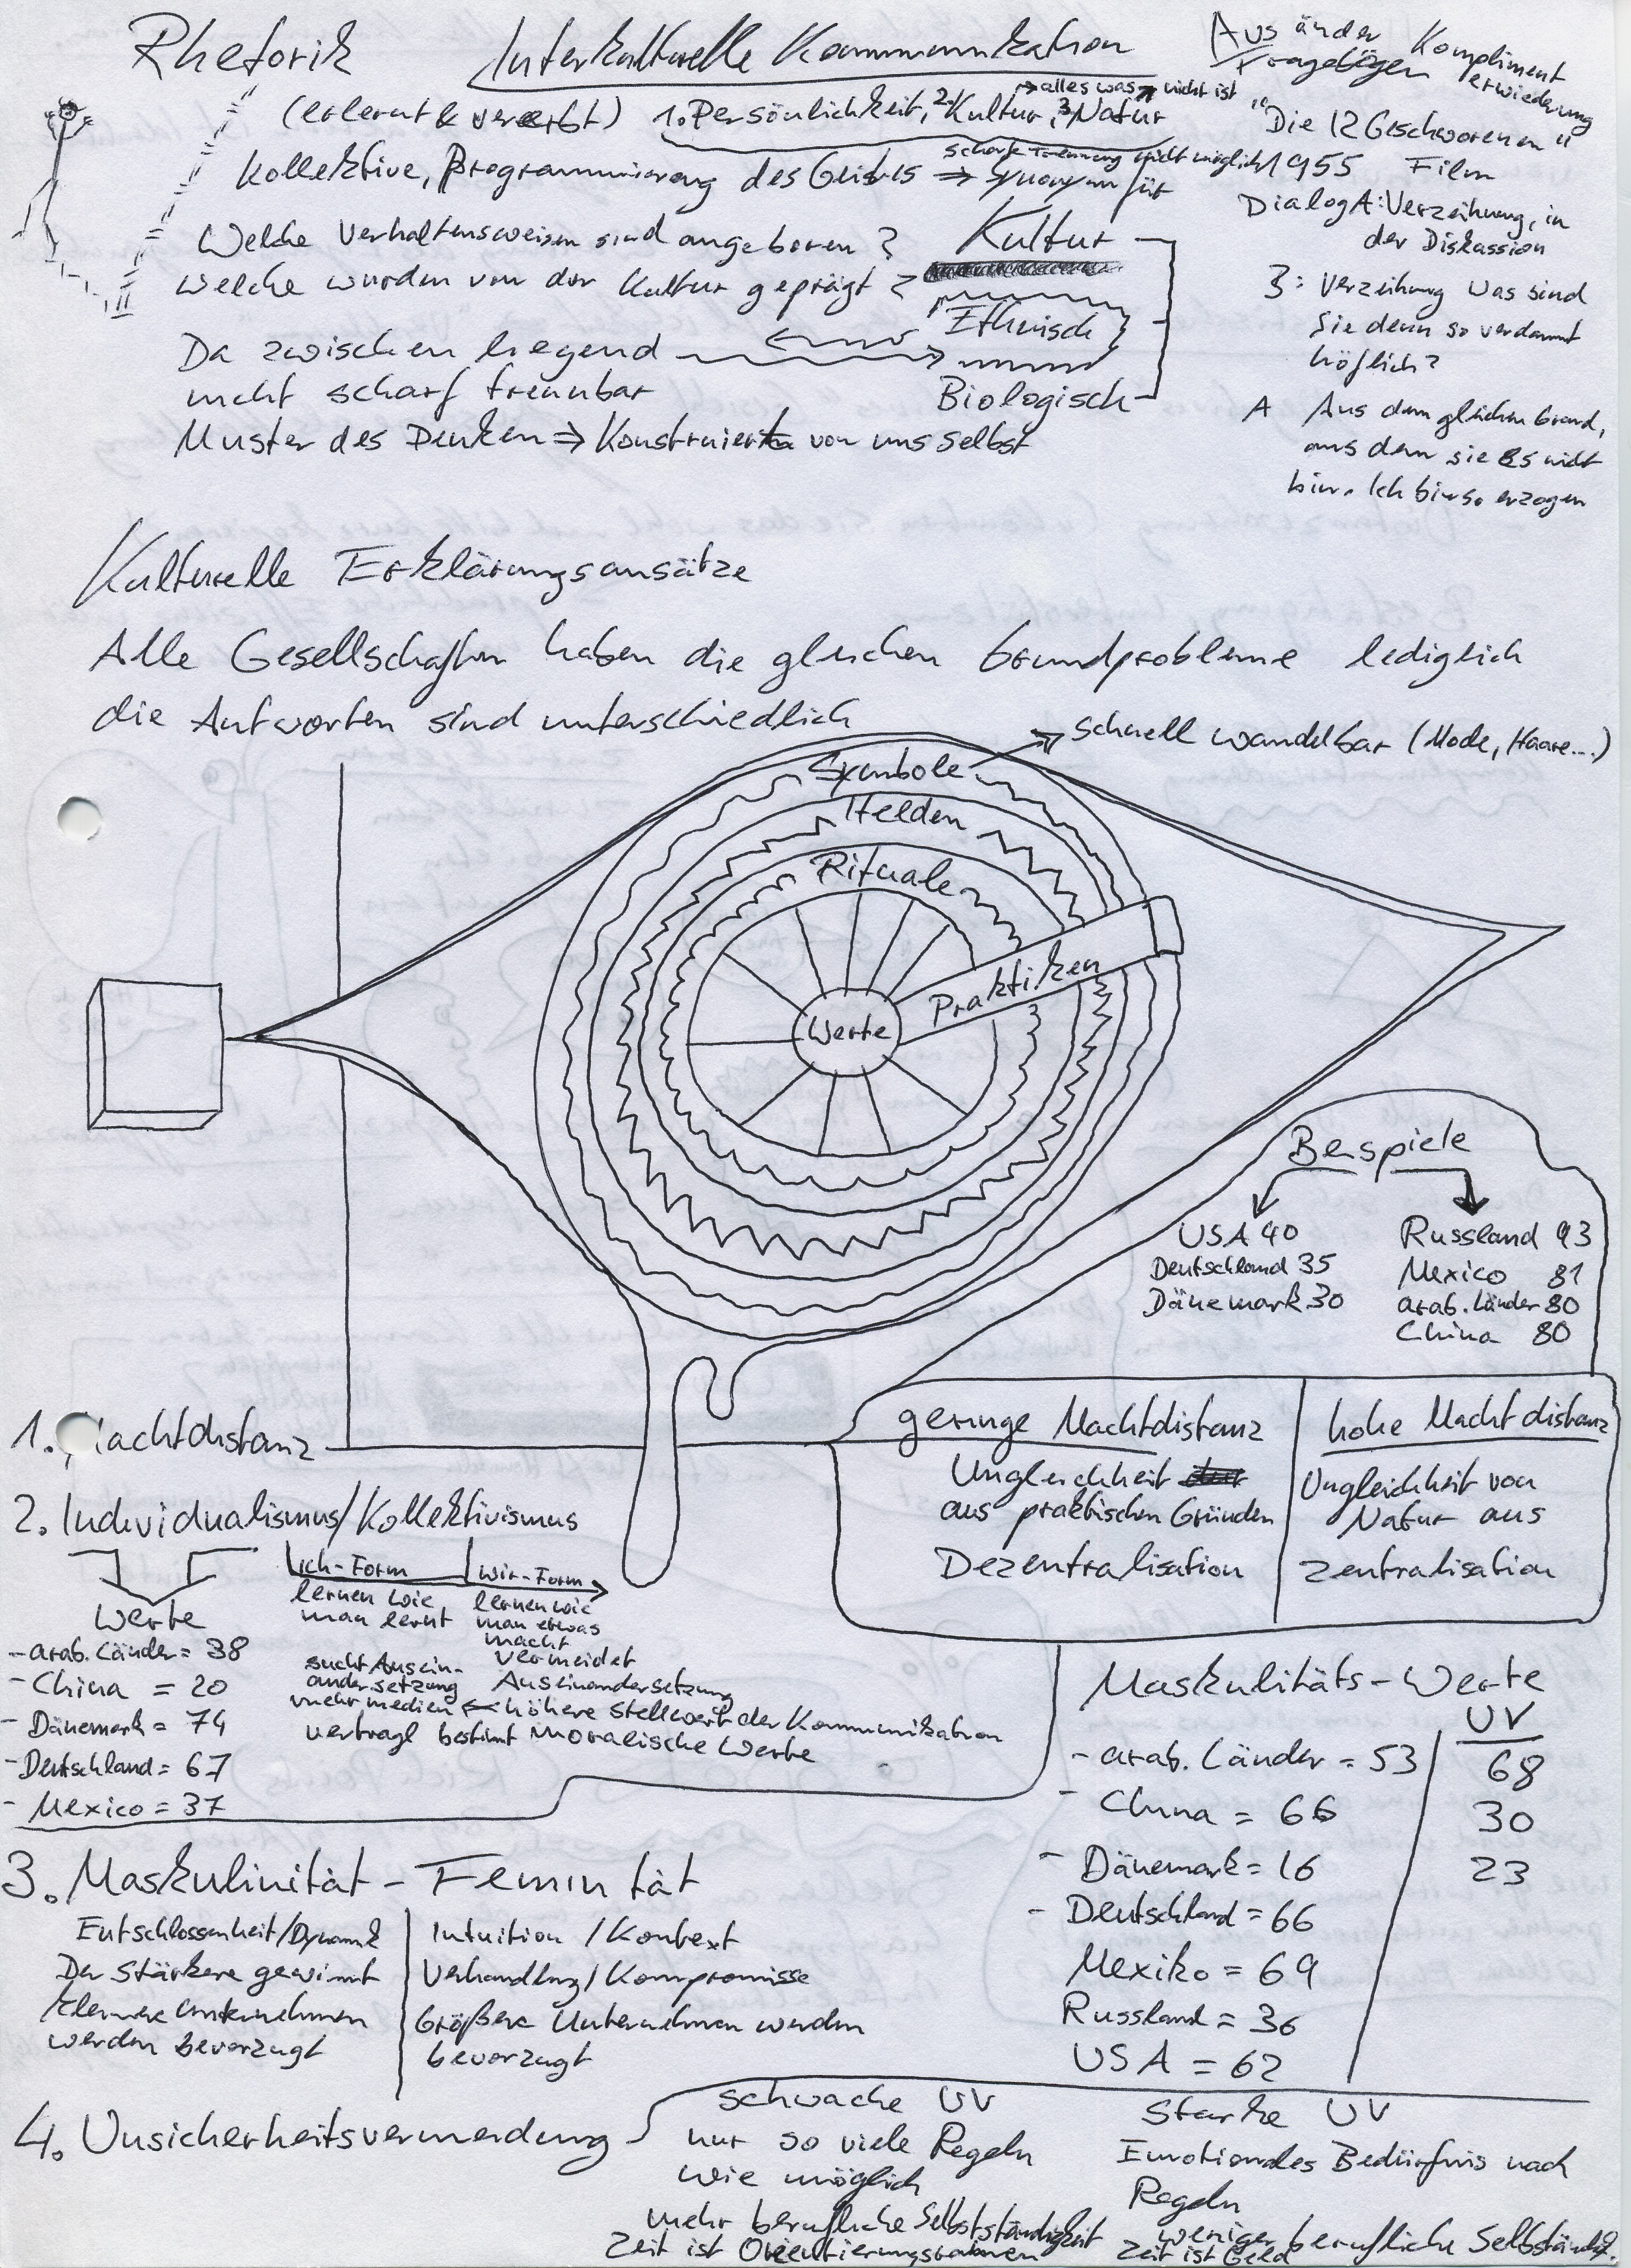 Rhetorik
Interkulturelle Kommunikation
(erlernt & vererbt) 1. Persönlichkeit, 2. Kultur, 3. Natur
→ alles was nicht ist
Kollektive, Programmierung des Geistes ⇒ Synonym für
scharfe Trennung nicht möglich
Welche Verhaltensweisen sind angeboren?
Welche wurden von der Kultur geprägt?
Kultur
Ethnisch
Biologisch
Da zwischen liegend
nicht scharf trennbar
Muster des Denken ⇒ Konstruiert von uns selbst
Kompliment
erwiederung
"Die 12 Geschworenen"
1955 Film
Dialog A: Verzeihung, in
der Diskussion
B: Verzeihung was sind
Sie denn so verdammt
höflich?
A Aus dem gleichen Grund,
aus dem sie es nicht
bin. Ich bin so erzogen
Kulturelle Erklärungsansätze
Alle Gesellschaften haben die gleichen Grundprobleme lediglich
die Antworten sind unterschiedlich
→ schnell wandelbar (Mode, Haare...)
Symbole
Helden
Rituale
Praktiken
Werte
Beispiele
USA 40
Deutschland 35
Dänemark 30
Russland 93
Mexico 81
arab. Länder 80
China 80
1. Machtdistanz
geringe Machtdistanz
Ungleichheit
aus praktischen Gründen
Dezentralisation
hohe Machtdistanz
Ungleichheit von
Natur aus
Zentralisation
2. Individualismus/Kollektivismus
Werte
- arab. Länder = 38
- China = 20
- Dänemark = 74
- Deutschland = 67
- Mexico = 37
ich-Form
lernen wie
man lernt
sucht Ausein-
andersetzung
mehr medien ← höhere Stellwert der Kommunikation
vertragl bestimt moralische Werte
wir-Form
lernen wie
man etwas
macht
vermeidet
Auseinandersetzung
Maskulitäts-Werte
UV
- arab. Länder = 53 68
- China = 66 30
- Dänemark = 16 23
- Deutschland = 66
Mexiko = 69
Russland = 36
USA = 62
3. Maskulinität - Feminität
Entschlossenheit/Dynamik
Der Stärkere gewinnt
kleinere Unternehmen
werden bevorzugt
Intuition / Kontext
Verhandlung / Kompromisse
Größere Unternehmen werden
bevorzugt
4. Unsicherheitsvermeidung
schwache UV
nur so viele Regeln
wie möglich
mehr berufliche Selbstständigkeit
Zeit ist Orientierungsrahmen
Starke UV
Emotionales Bedürfnis nach
Regeln
weniger berufliche Selbständigk.
Zeit ist Geld